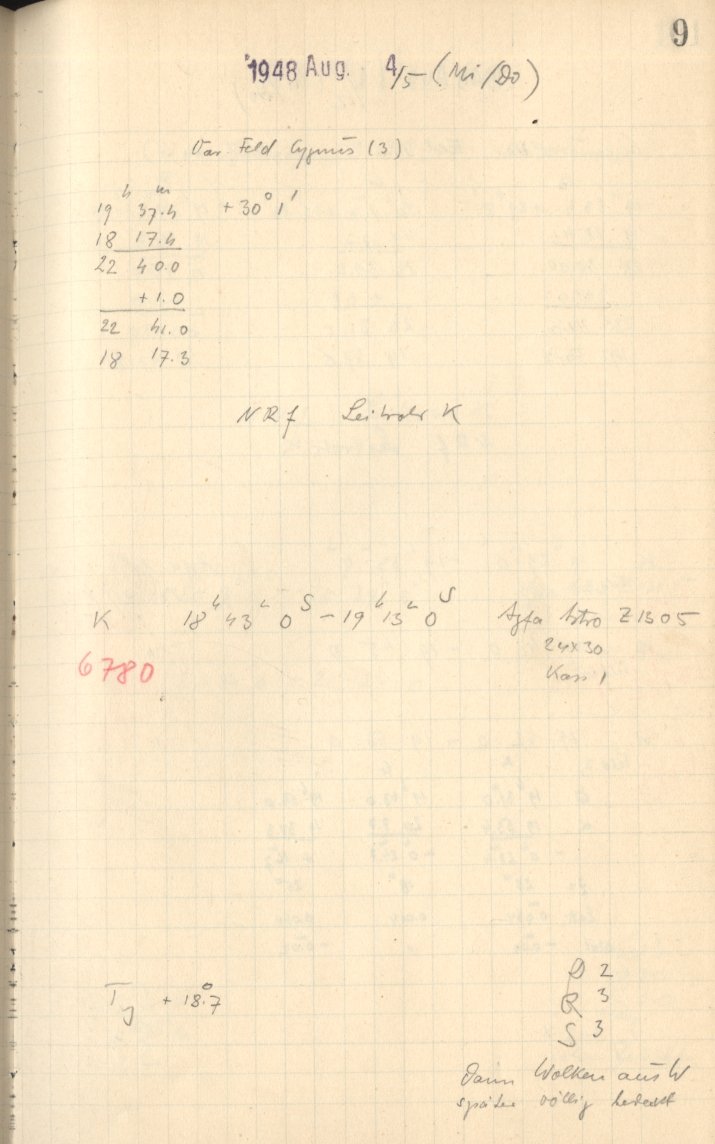 9
1948 Aug. 4/5 (Mi/Do)
Var Feld Cygnus (3)
19ʰ 37.4ᵐ +30° 1'
18 17.4
22 40.0
+1.0
22 41.0
18 17.3
NRf Leitrohr K
K 18ʰ 43ᵐ 0ˢ – 19ʰ 13ᵐ 0ˢ Agfa Astro Z1305
24x30
6780
Kass 1
D 2
T +18.°7
R 3
S 3
Dann Wolken aus W
später völlig bedeckt